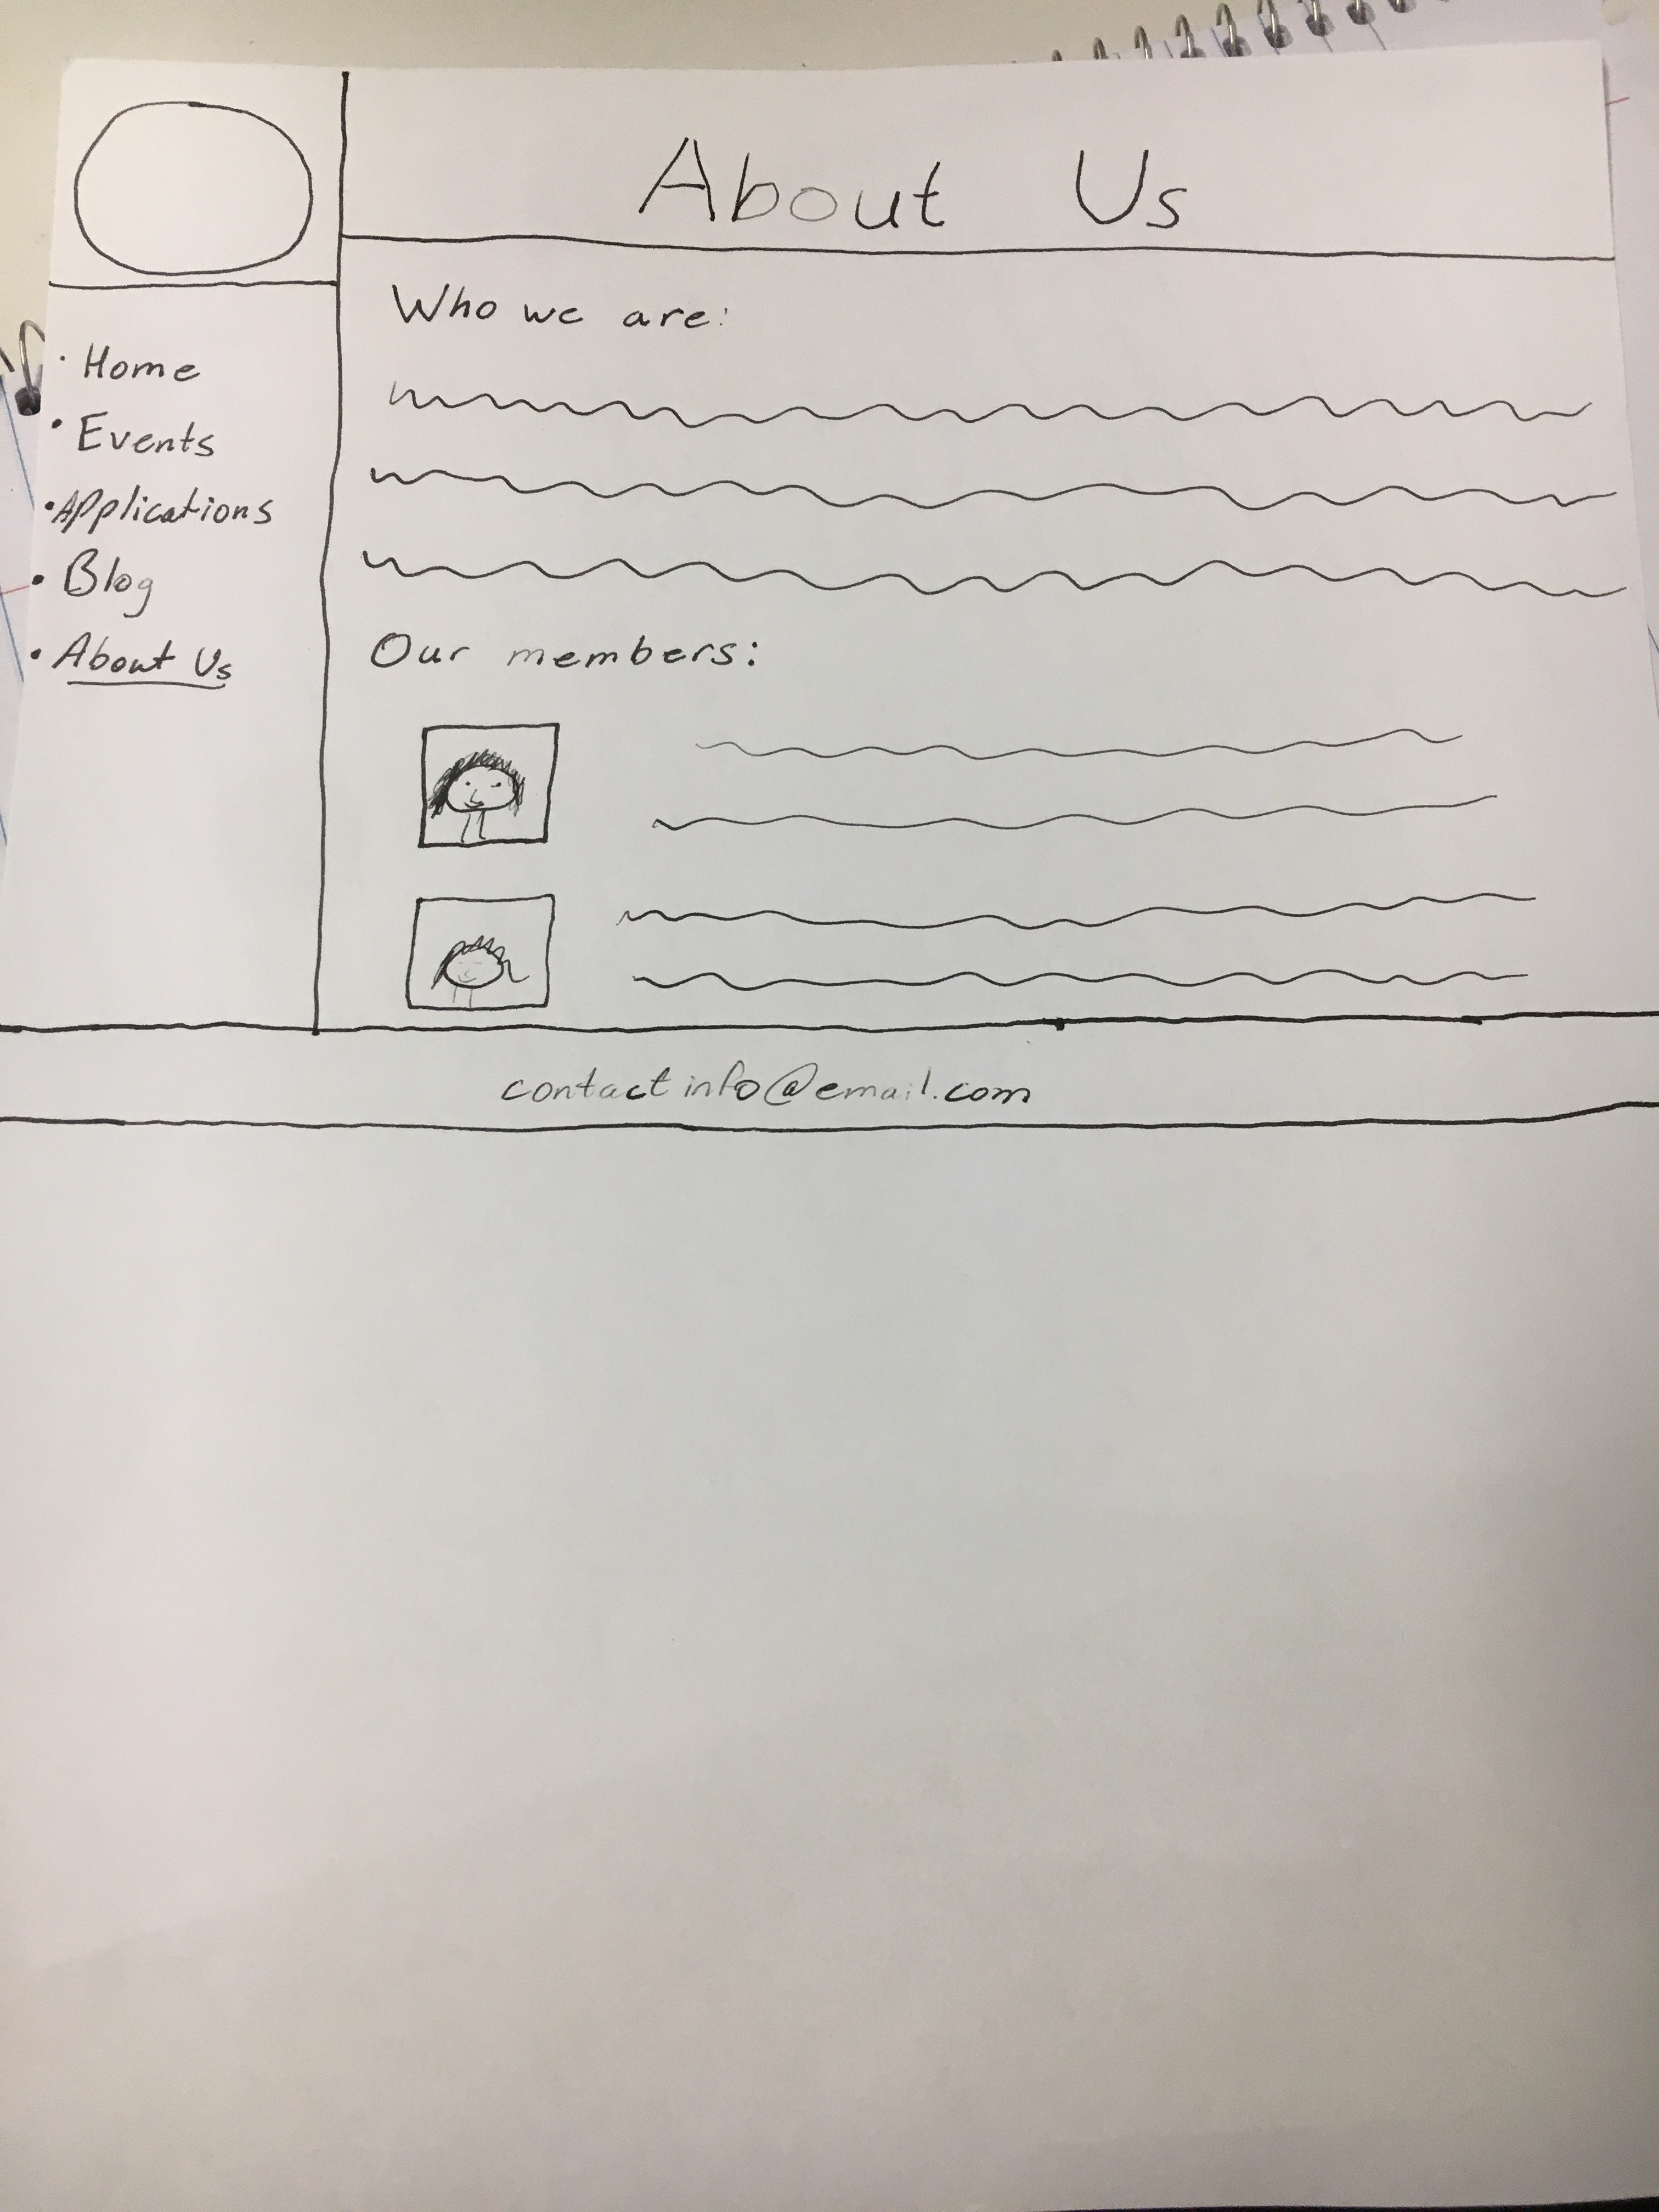 About Us
Home
Events
Applications
Blog
About Us
Who we are:
Our members:
contactinfo@email.com